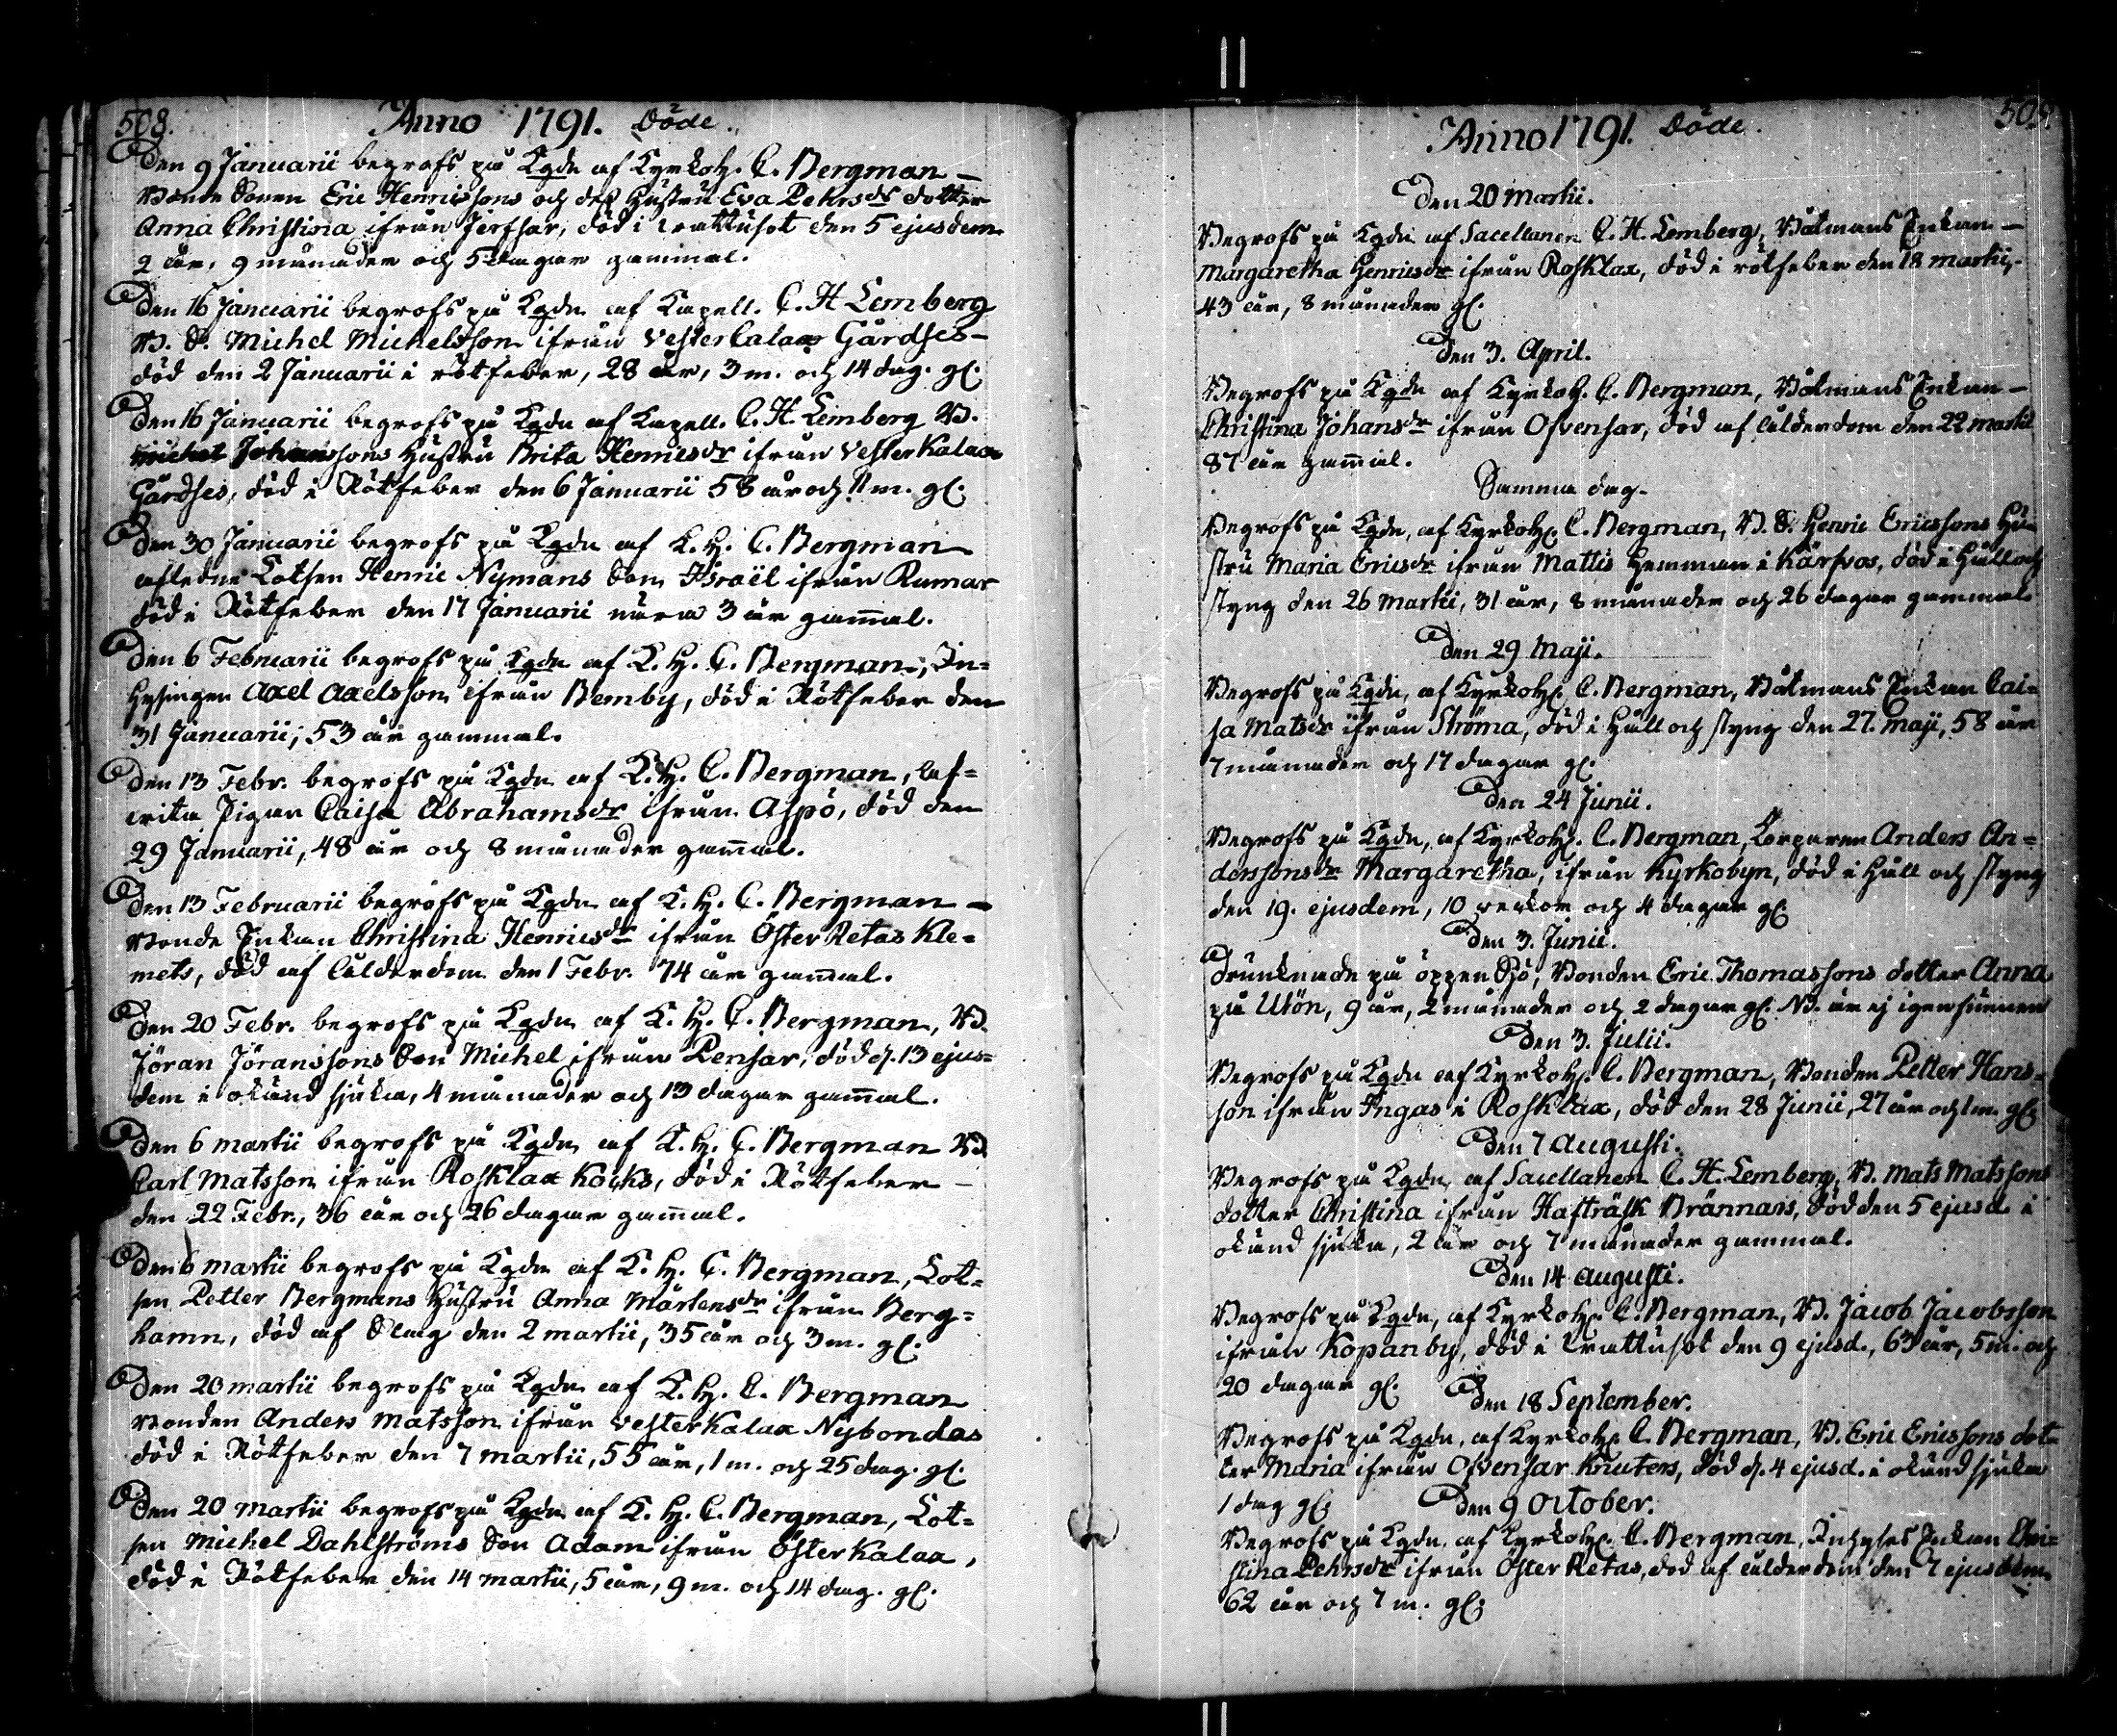 508.
Anno 1791. Döde.
Den 9 Januarii begrofs på Kgdn af Kyrkoh. C. Bergman –
Bonde Sonen Eric Henricssons och dess hustru Eva Pehrsdr dotter
Anna Christina ifrån Jerfsar, död i brättusot den 5 ejusdem
2 år, 9 månader och 5 dagar gammal.
Den 16 Januarii begrofs på Kgdn af Kapell. C. H Lemberg
B. S. Michel Michelsson ifrån Vesterkalax Gårdses –
död den 2 Januarii i rötfeber, 28 år, 3 m. och 14 dag. gl.
Den 16 Januarii begrofs på Kgdn af Kapell. C. H. Lemberg B.
Michel Johanssons hustru Brita Henricsdr ifrån Vesterkalax
Gårdses, död i Rötfeber den 6 Januarii 58 år och 11 m. gl.
Den 30 Januarii begrofs på Kgdn af K. H. C. Bergman
aflednes Lotsen Henric Nymans Son Israël ifrån Rumar
död i Rötfeber den 17 Januarii nära 3 år gam̄al.
Den 6 Februarii begrofs på Kgdn af K. H. C. Bergman, In=
hysingen Axel Axelsson ifrån Bemby, död i Rötfeber den
31 Januarii, 53 år gammal.
Den 13 Febr. begrofs på Kgdn af K. H. C. Bergman,
Pigan Caisa Abrahamsdr ifrån Aspö, död den
29 Januarii, 48 år och 8 månader gam̄al.
Den 13 Februarii begrofs på Kgdn af K. H. C. Bergman –
Bonde Enkan Christina Henricsdr ifrån Öster Retas Kle=
mets, död af ålderdom den 1 Febr. 74 år gam̄al.
Den 20 Febr. begrofs på Kgdn af K. H. C. Bergman, B.
Jöran Jöranssons Son Michel ifrån Pensar, död d. 13 ejus=
dem i okänd sjuka, 4 månader och 13 dagar gam̄al.
Den 6 martii begrofs på Kgdn af K. H. C. Bergman B.
Carl Matsson ifrån Rosklax Kocks, död i Rötfeber –
den 22 Febr., 36 år och 26 dagar gam̄al.
Den 6 martii begrofs på Kgdn af K. H. C. Bergman, Lot=
sen Petter Bergmans hustru Anna Mårtensdr ifrån Berg=
hamn, död af Slag den 2 martii, 35 år och 3 m. gl.
Den 20 martii begrofs på Kgdn af K. H. C. Bergman
Bonden Anders Matsson ifrån Vesterkalax Nybondas
död i Rötfeber den 7 martii, 55 år, 1 m. och 25 dag. gl.
Den 20 martii begrofs på Kgdn af K. H. C. Bergman, Lot=
sen Michel Dahlströms Son Adam ifrån Österkalax,
död i Rötfeber den 14 martii, 5 år, 9 m. och 14 dag. gl.
509.
Anno 1791. Döde.
Den 20 Martii.
Begrofs på Kgdn af Sacellanen C. H. Lemberg, Båtmans Enkan –
Margaretha Henricsdr ifrån Rosklax, död i rötfeber den 18 martii,
43 år, 8 månader gl.
Den 3. April.
Begrofs på Kgdn af Kyrkoh. C. Bergman, Båtmans Enkan –
Christina Johansdr ifrån Ofvensar, död af ålderdom den 22 martii
87 år gam̄al.
Samma dag.
Begrofs på Kgdn, af Kyrkoh. C. Bergman, B. S. Henric Ericssons hu=
stru Maria Ericsdr ifrån Mattis hemman i Kärfvos, död i håll och
styng den 26 Martii, 31 år, 8 månader och 26 dagar gammal.
Den 29 Maji.
Begrofs på Kgdn, af Kyrkoh. C. Bergman, Båtmans Enkan Cai=
sa Matsdr ifrån Ströma, död i håll och styng den 27. Maji, 58 år
7 månader och 17 dagar gl.
Den 24 Junii.
Begrofs på Kgdn, af Kyrkoh. C. Bergman, Torparen Anders An=
derssons dr Margaretha, ifrån Kyrkobyn, död i håll och styng
den 19. ejusdem, 10 veckor och 4 dagar gl.
Den 3. Junii.
Drunknade på öppen Sjö, Bonden Eric Thomassons dotter Anna
på Utön, 9 år, 2 månader och 2 dagar gl. NB. är ej igenfunnen
Den 3. Julii.
Begrofs på Kgdn af Kyrkoh. C. Bergman, Bonden Petter Hans=
son ifrån Ingas i Rosklax, död den 28 Junii, 27 år och 1 m. gl.
Den 7 Augusti.
Begrofs på Kgdn, af Sacellanen C. H. Lemberg, B. Mats Matssons
dotter Christina ifrån Hafträsk Brännars, död den 5 ejusd. i
okänd sjuka, 2 år och 7 månader gammal.
Den 14 Augusti.
Begrofs på Kgdn, af Kyrkoh. C. Bergman, B. Jacob Jacobsson
ifrån Kopanby, död i brättusot den 9 ejusd., 63 år, 5 m. och
20 dagar gl.
Den 18 September.
Begrofs på Kgdn, af Kyrkoh. C. Bergman, B. Eric Ericssons dot=
ter Maria ifrån Ofvensar Knuters, död d. 4 ejusd. i okänd sjuka
1 dag gl.
Den 9 October.
Begrofs på Kgdn, af Kyrkoh. C. Bergman, Inhyses Enkan Chri=
stina Pehrsdr ifrån Öster Retas, död af ålderdom den 7 ejusdem.
62 år och 7 m. gl.